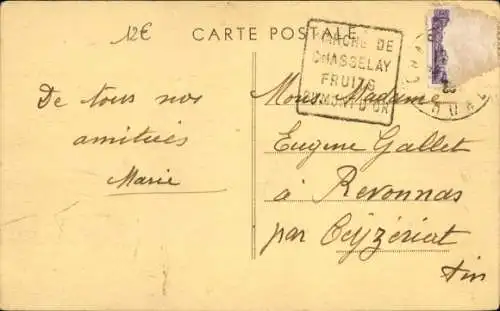 12€
CARTE POSTALE
MARCHÉ DE
CHASSELAY
FRUITS
DU MONT D'OR
De tous nos
amitiés
Marie
Mons. Madame
Eugène Gallet
à Revonnas
par Ceyzériat
Ain